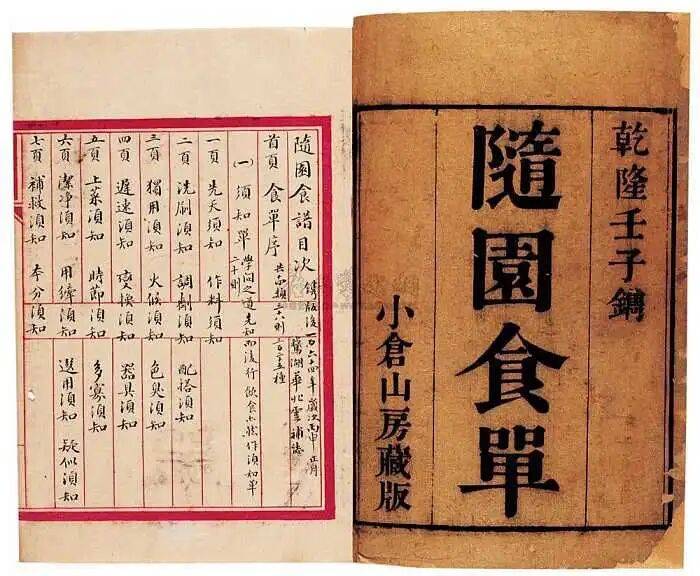 乾隆壬子鐫
隨園食單
小倉山房藏版
隨園食譜目次 鐫版後一百六十四年歲次丙申正月
鴛湖華北雲補誌
首頁 食單序
(一) 須知單 二十則 學問之道先知而後行飲食亦然作須知單
一頁 先天須知 作料須知
二頁 洗刷須知 調劑須知 配搭須知
三頁 獨用須知 火候須知 色臭須知
四頁 遲速須知 變換須知 器具須知
五頁 上菜須知 時節須知 多寡須知
六頁 潔净須知 用縴須知 選用須知 疑似須知
七頁 補救須知 本分須知